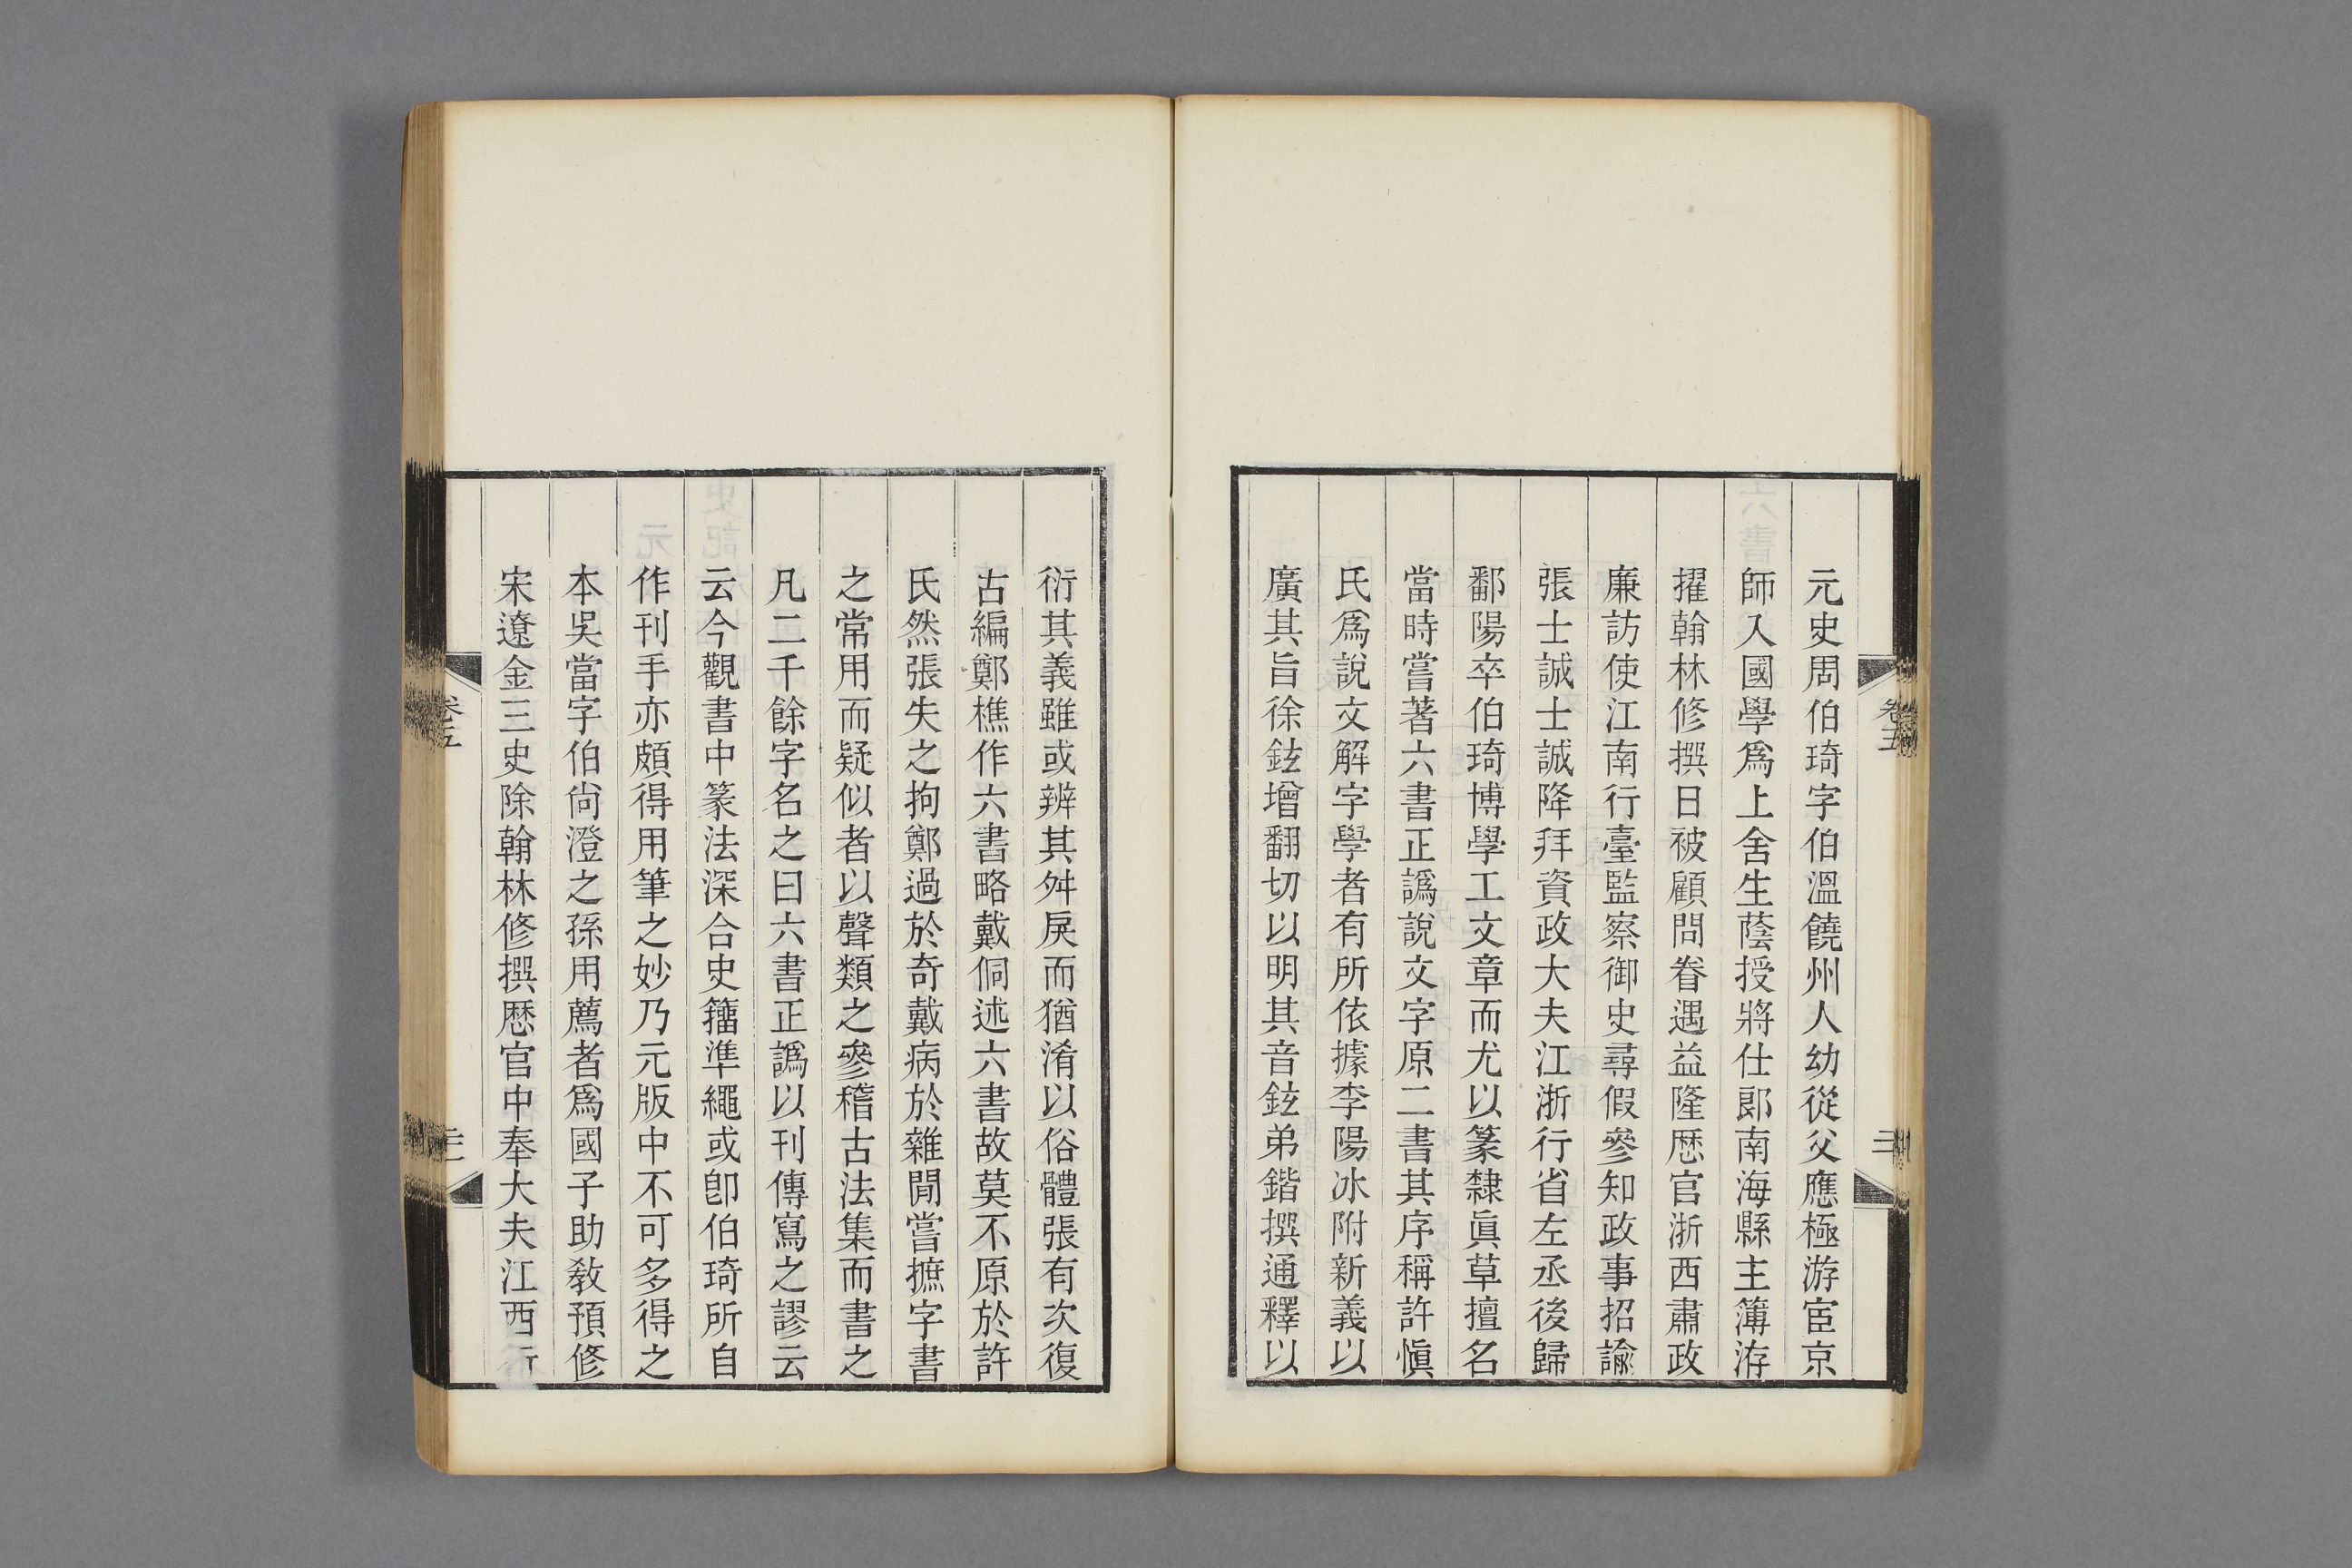 元史周伯琦字伯溫饒州人幼從父應極游宦京
師入國學爲上舍生蔭授將仕郎南海縣主簿洊
擢翰林修撰日被顧問眷遇益隆歷官浙西肅政
廉訪使江南行臺監察御史尋假參知政事招諭
張士誠士誠降拜資政大夫江浙行省左丞後歸
鄱陽卒伯琦博學工文章而尤以篆隸眞草擅名
當時嘗著六書正譌說文字原二書其序稱許愼
氏爲說文解字學者有所依據李陽冰附新義以
廣其旨徐鉉增翻切以明其音鉉弟鍇撰通釋以
卷五
衍其義雖或辨其舛戾而猶淆以俗體張有次復
古編鄭樵作六書略戴侗述六書故莫不原於許
氏然張失之拘鄭過於奇戴病於雜閒嘗摭字書
之常用而疑似者以聲類之參稽古法集而書之
凡二千餘字名之曰六書正譌以刊傳寫之謬云
云今觀書中篆法深合史籀準繩或卽伯琦所自
作刊手亦頗得用筆之妙乃元版中不可多得之
本吳當字伯尙澄之孫用薦者爲國子助敎預修
宋遼金三史除翰林修撰歷官中奉大夫江西行
卷五